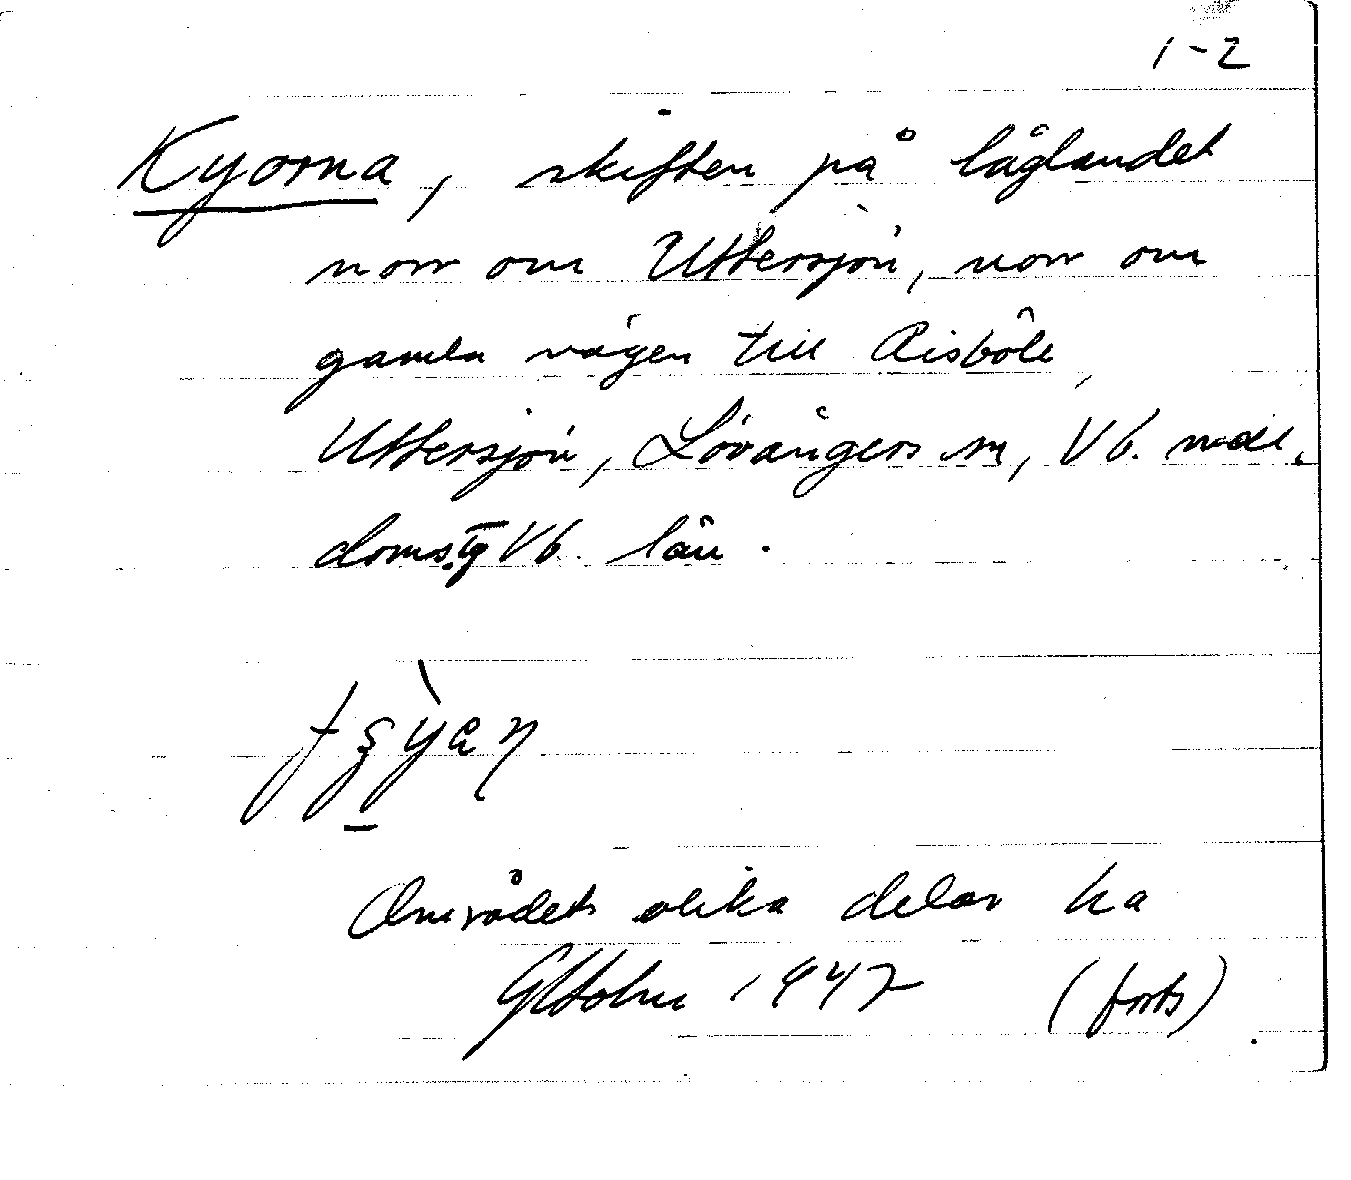 1-2
Kyorna, skiften på låglandet
norr om Uttersjön, norr om
gamla vägen till Risböle,
Uttersjön, Lövångers sn, Vb. nedre
doms.tg Vb. län.
Området olika delar ha
GHolm 1947 (forts)